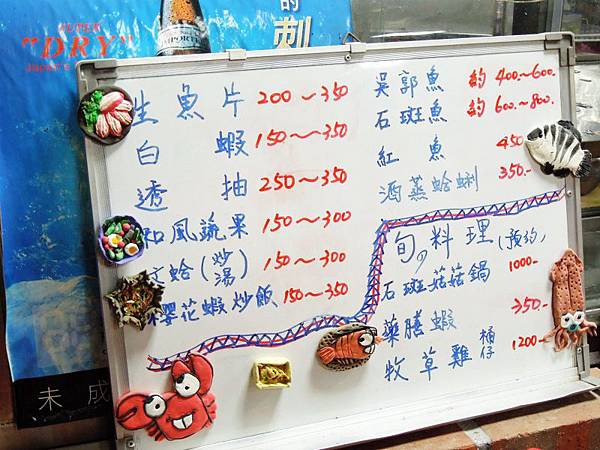 SUPER
"DRY"
的
刺
生魚片 200～350
白蝦 150～350
透抽 250～350
和風蔬果 150～300
蛤(炒湯) 150～300
櫻花蝦炒飯、150～350
吳郭魚 約400～600.
石斑魚 約600～800.
紅魚 450
酒蒸蛤蜊 350.-
旬の料理(預約)
石斑菇菇鍋 1000-
藥膳蝦 350.
牧草雞 桶仔 1200-
未成